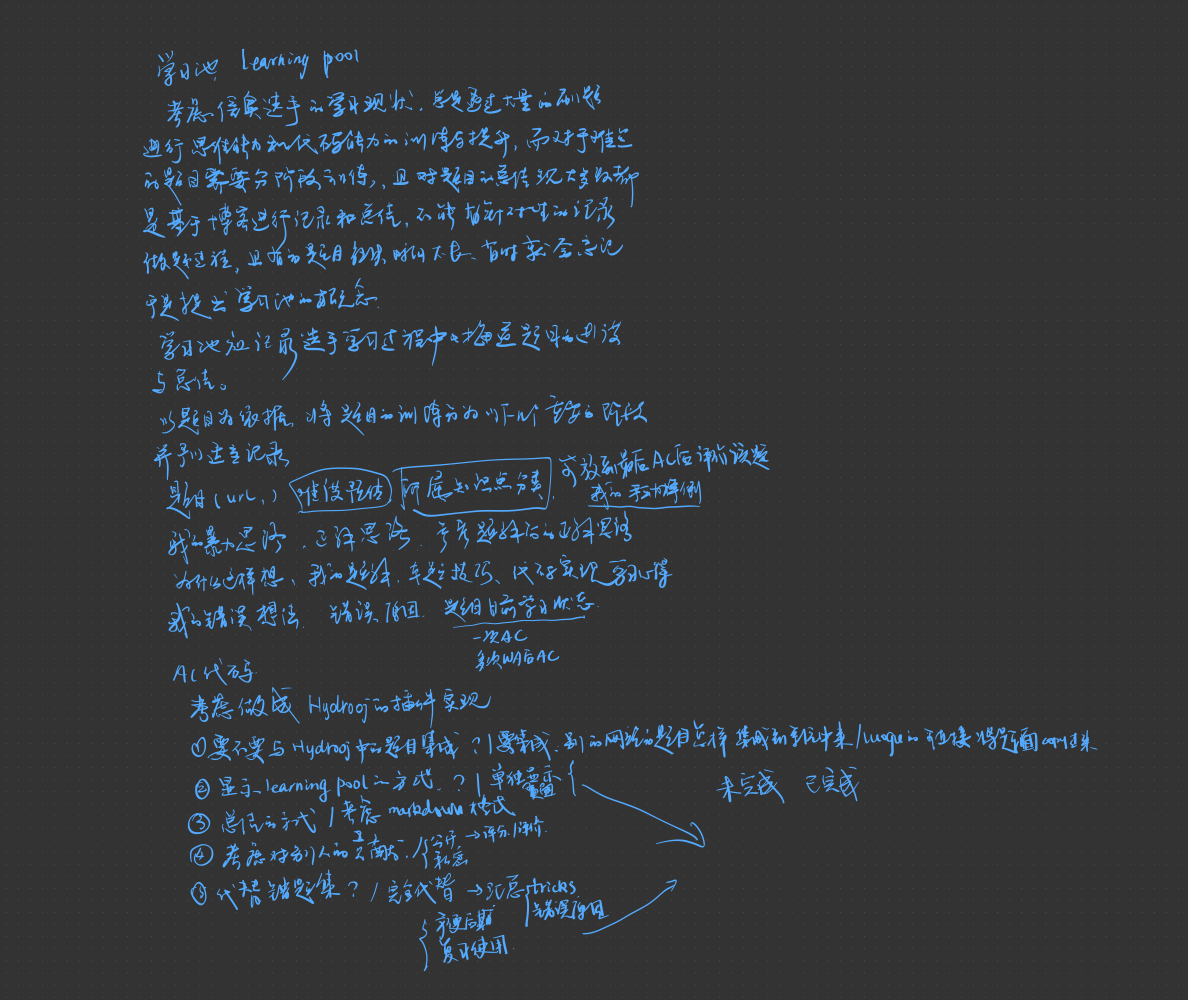 学习池 learning pool
考虑信奥选手的学习现状,总是通过大量的刷题
进行思维能力和代码能力的训练与提升,而对于难点
的题目需要分阶段训练,且对题目的总结现大多数都
是基于博客进行记录和总结,不能有针对性的记录
做题过程,且有的题目 时间太长,有时就会忘记
于是提出学习池的概念.
学习池应记录选手学习过程中每道题目的
与总结。
以题目为依据,将题目的训练分为以下几个重要的阶段
并予以 记录
题目(url,) 难度预估 所属知识点分类, 可放到最后AC后评价该题
我的 样例
我的暴力思路,正解思路,参考题解后的正解思路
为什么这样想,我的题解,本题技巧、代码实现 学习心得
我的错误想法 错误原因. 题目目前学习状态.
一次AC
多次WA后AC
AC代码
考虑做成 Hydrooj的插件实现
①要不要与Hydrooj中的题目集成?/要集成.别的网站的题目怎样集成到系统中来/luogu的 链接 将题面copy过来
②显示learning pool的方式.?/单独
未完成 已完成
③总结的方式/考虑markdown格式
④考虑对别人的贡献./公开,→评分/评价.
私密
⑤代替错题集?/完全代替→汇总tricks
错误原因
方便后期
复习使用.